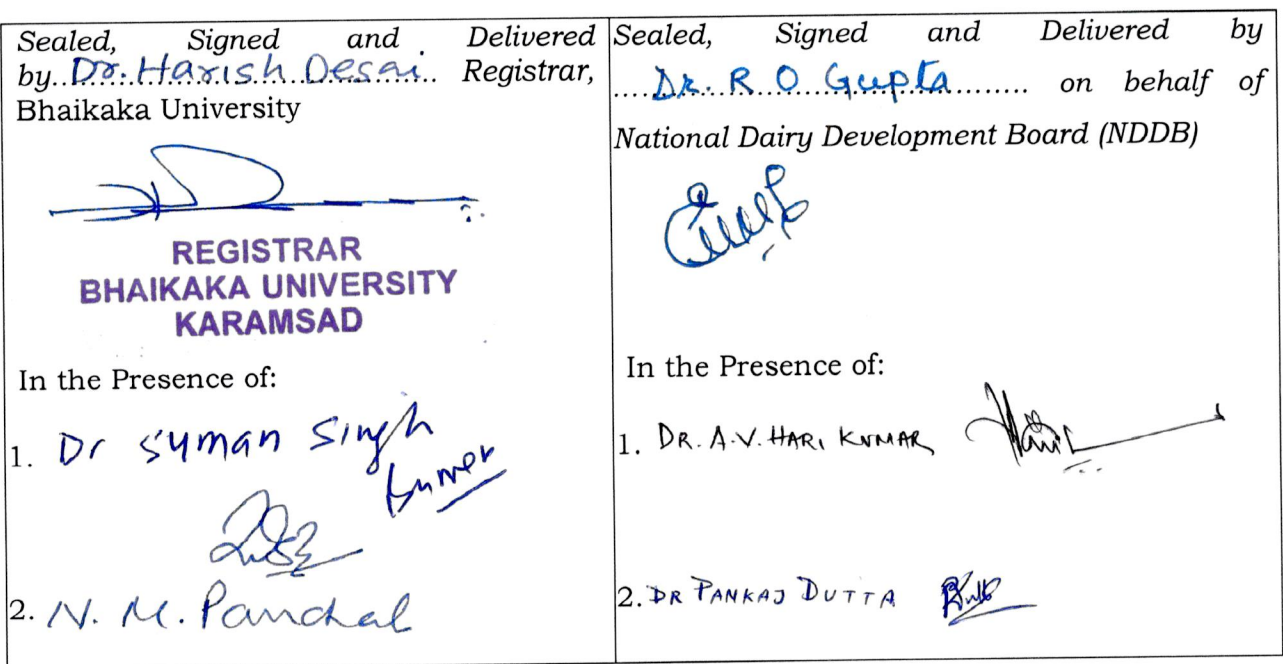 Sealed, Signed and Delivered
by..Dr. Harish Desai.. Registrar,
Bhaikaka University
REGISTRAR
BHAIKAKA UNIVERSITY
KARAMSAD
In the Presence of:
1. Dr Suman Singh
2. N. M. Panchal
Sealed, Signed and Delivered by
....Dr. R O Gupta.......... on behalf of
National Dairy Development Board (NDDB)
In the Presence of:
1. DR. A.V. HARI KUMAR
2. DR PANKAJ DUTTA